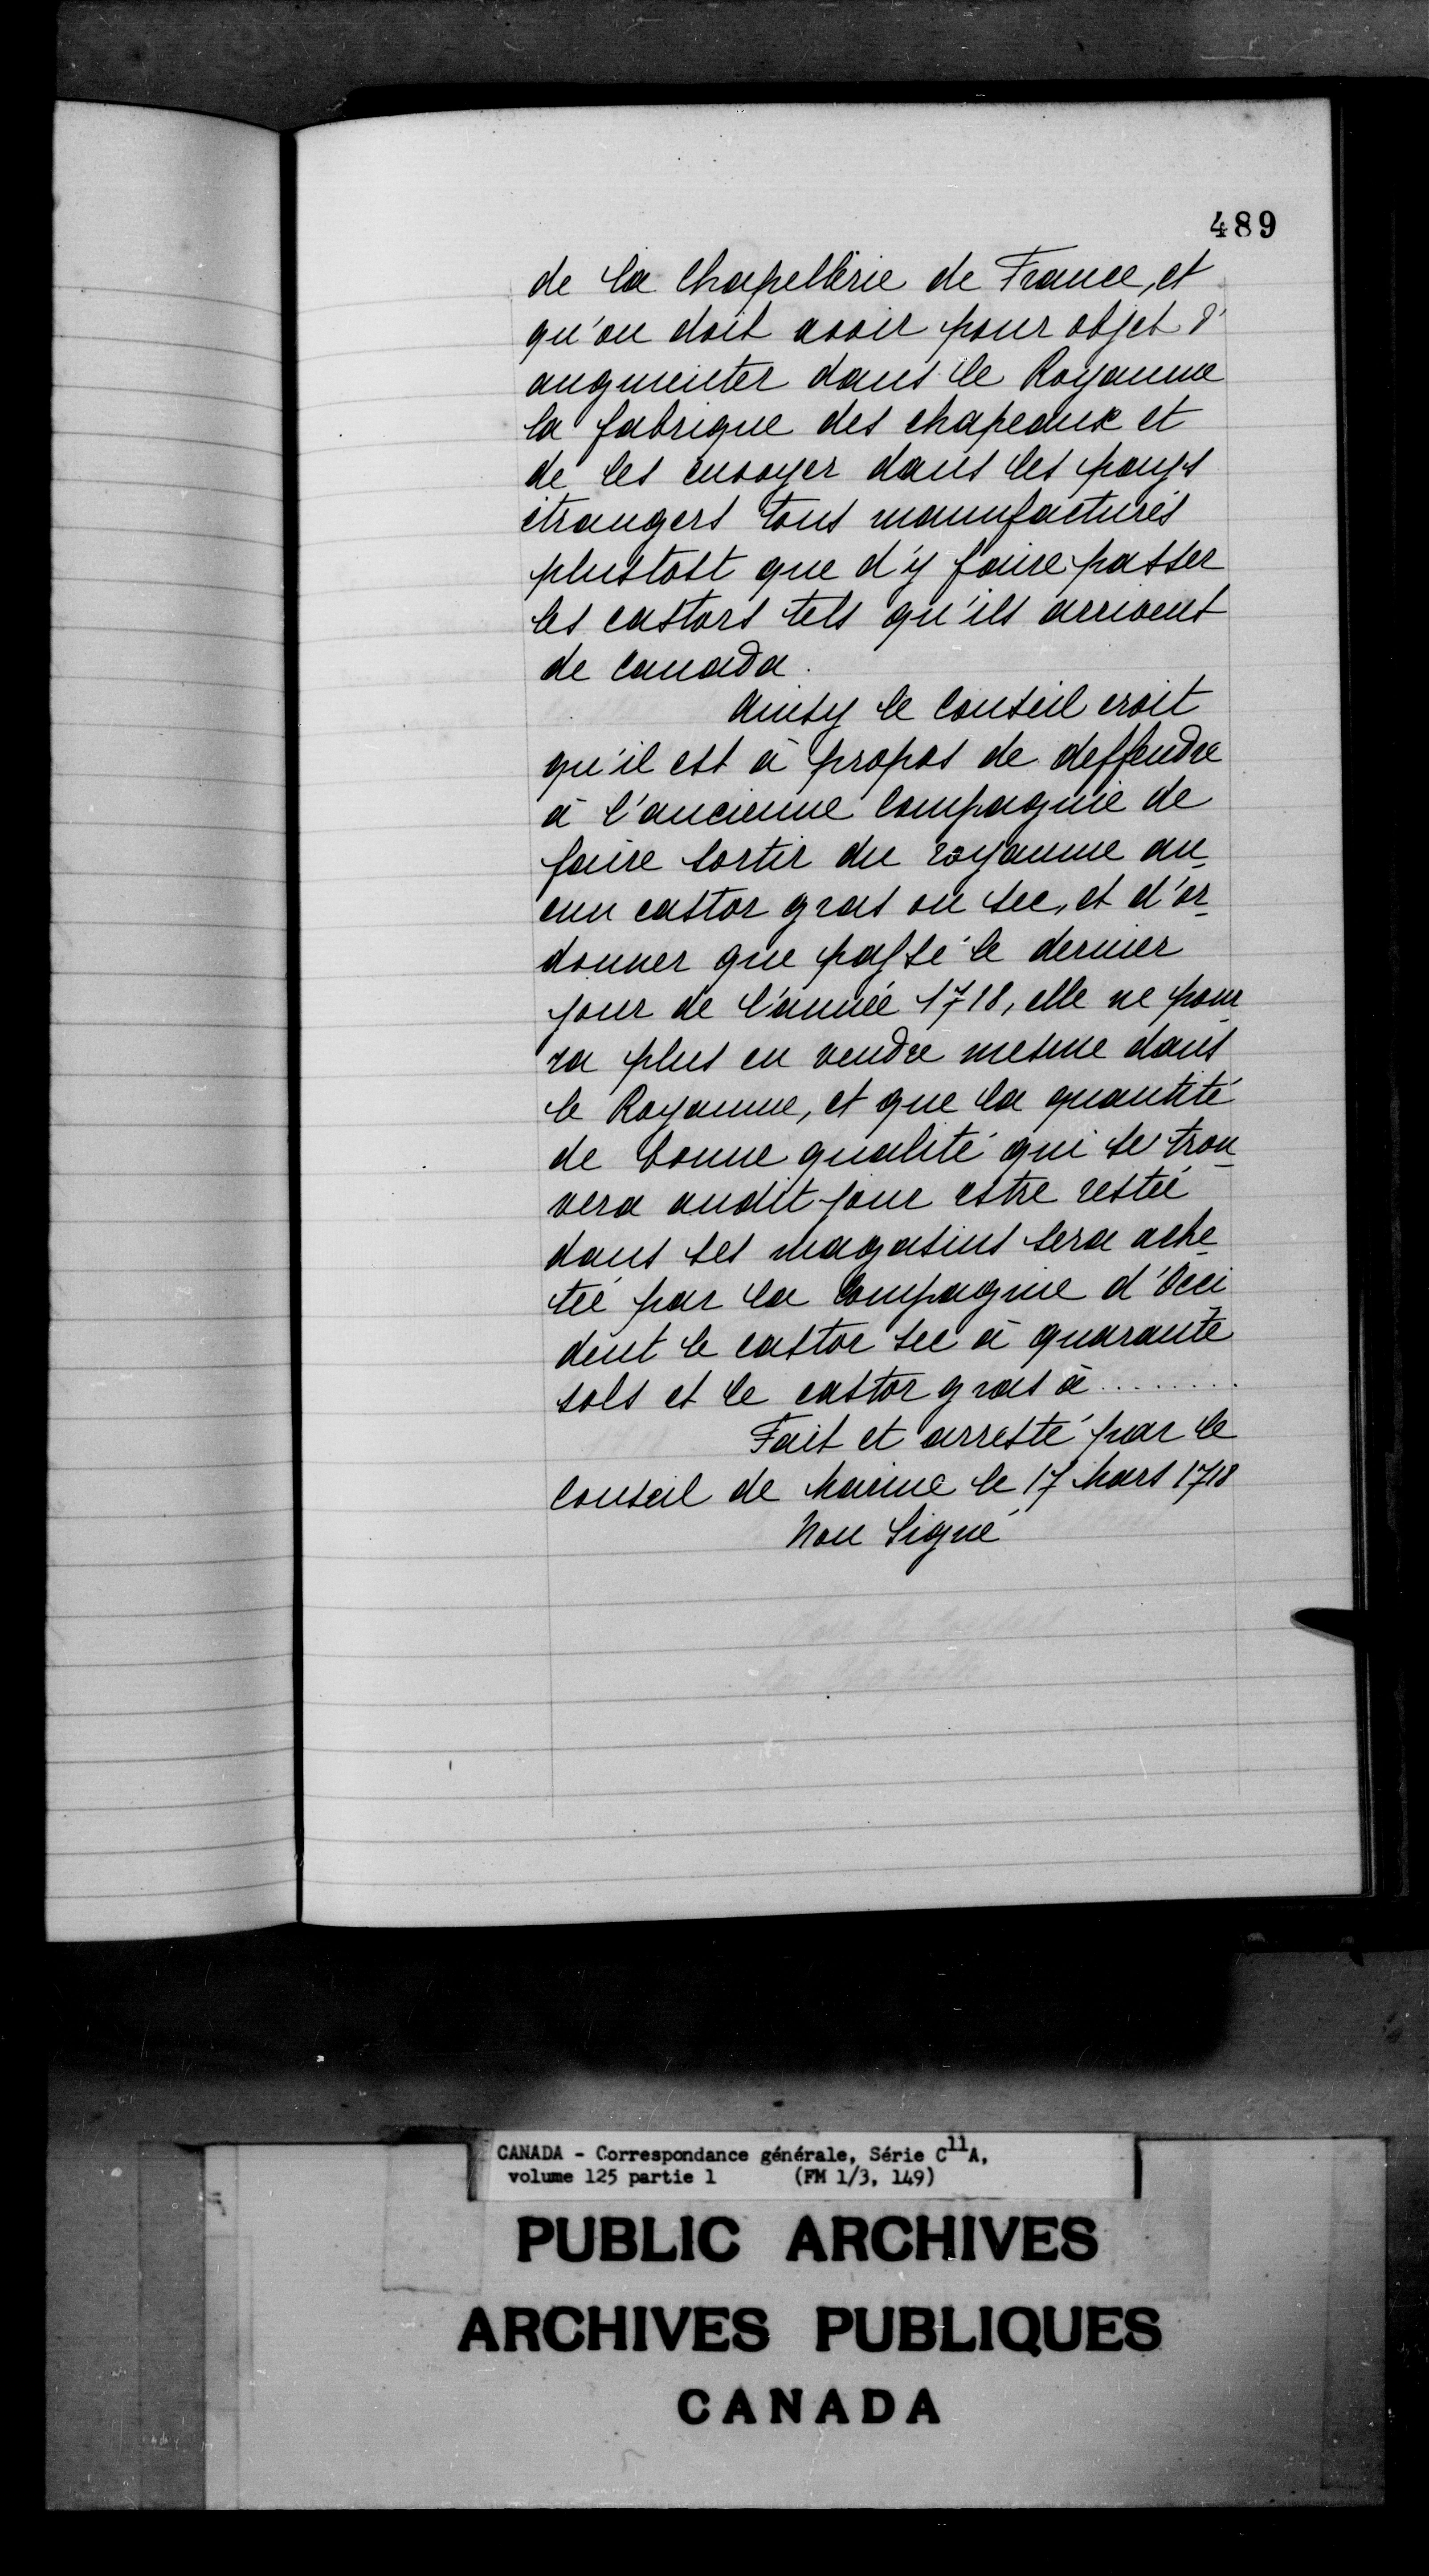 489
de la Chapellerie de France, et
qu'on doit avoir pour objet d'
augmenter dans le Royaume
la fabrique des chapeaux et
de les envoyer dans les pays
étrangers tous manufacturés
plustost que d'y faire passer
les castors tels qu'ils arrivent
de Canada.
Ainsy le Conseil croit
qu'il est à propos de deffendre
à l'ancienne Compagnie de
faire sortir du royaume au-
cun castor gras ou sec, et d'or-
donner que passé le dernier
jour de l'année 1718, elle ne pour-
ra plus en vendre mesme dans
le Royaume, et que la quantité
de bonne qualité qui se trou-
vera audit jour estre restée
dans ses magasins sera ache-
tée par la Compagnie d'Occi
dent le castor sec à quarante
sols et le castor gras à ........
Fait et arresté par le
Conseil de Marine le 17 Mars 1718
Non Signé
CANADA - Correspondance générale, Série C11A,
volume 125 partie 1 (FM 1/3, 149)
PUBLIC ARCHIVES
ARCHIVES PUBLIQUES
CANADA